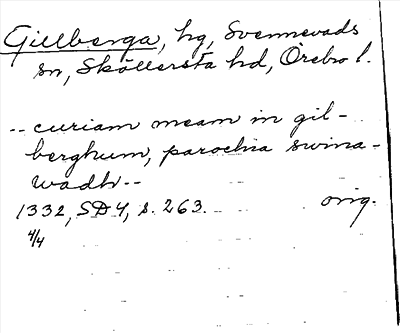 Gillberga, hg, Svennevads
sn, Sköllersta hd, Örebro l.
-- curiam meam in gil-
berghum, parochia swina-
wadh --
1332, SD 4, s. 263. orig.
4/4